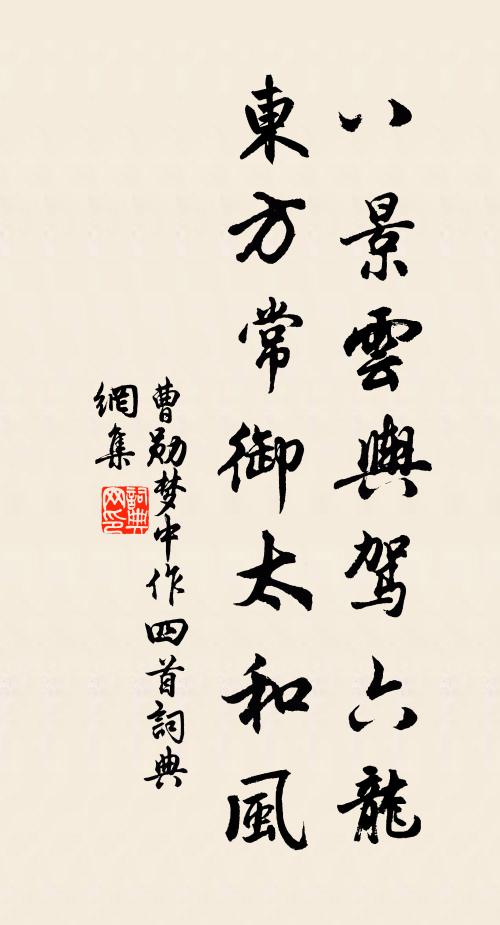 八景雲輿駕六龍
東方常御太和風
曹勋梦中作四首詞典
網集
詞典
网印